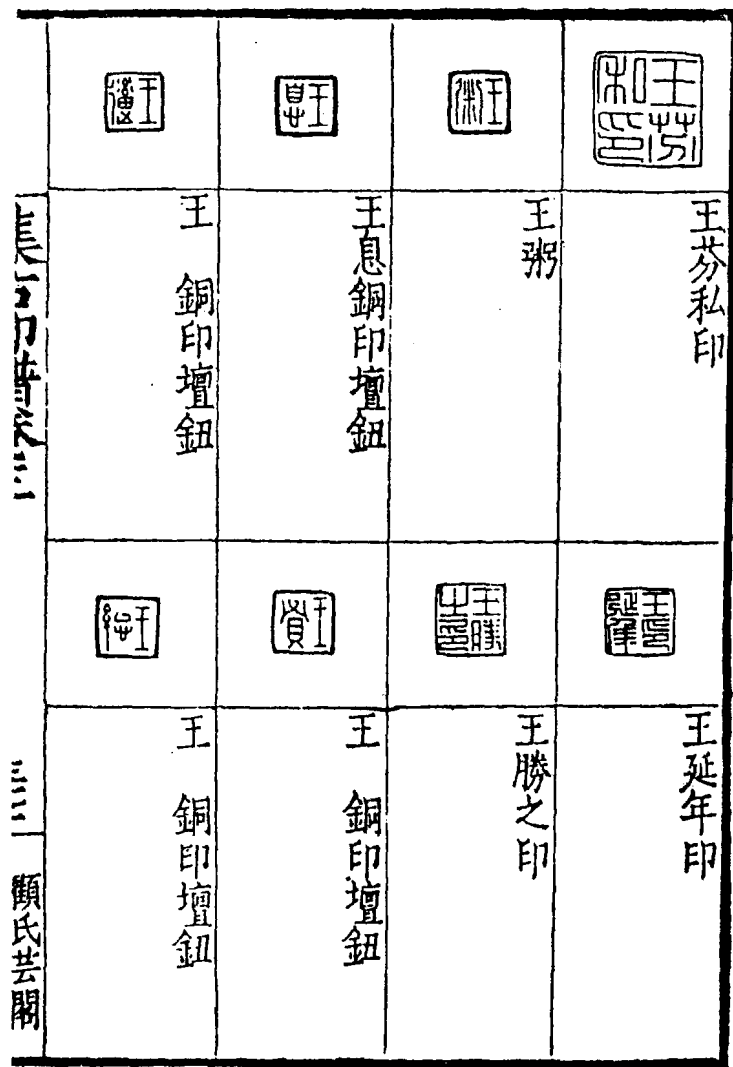 王芬私印
王粥
王息銅印壇鈕
王　銅印壇鈕
王延年印
王勝之印
王　銅印壇鈕
王　銅印壇鈕
集古印譜卷三
顧氏芸閣